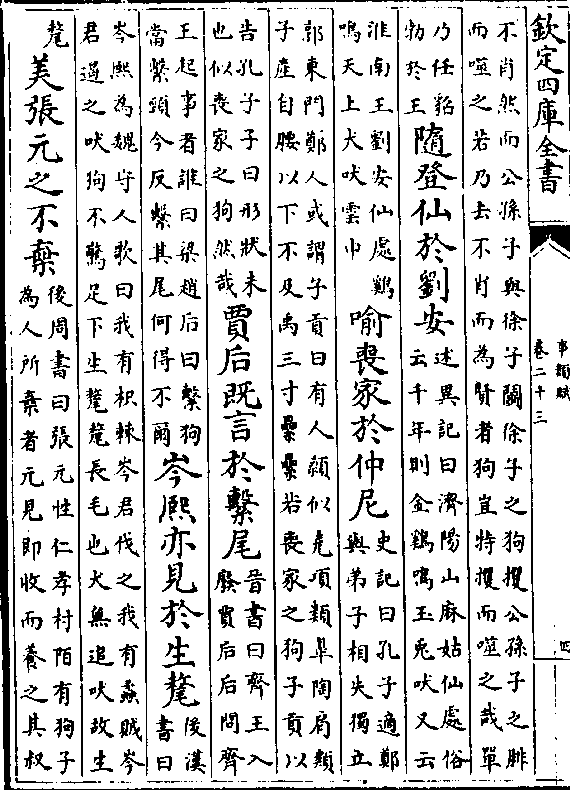 欽定四庫全書
事類賦
卷二十三
四
不肖然而公孫子與徐子鬬徐子之狗攫公孫子之腓
而噬之若乃去不肖而為賢者狗宜特攫而噬之哉單
乃任貂
勃於王
隨登仙於劉安
述異記曰濟陽山麻姑仙處俗
云千年則金鷄鳴玉兎吠又云
淮南王劉安仙處鷄
鳴天上犬吠雲中
喻喪家於仲尼
史記曰孔子適鄭
與弟子相失獨立
郭東門鄭人或謂子貢曰有人顙似堯項類臯陶肩類
子産自腰以下不及禹三寸纍纍若喪家之狗子貢以
告孔子子曰形狀未
也似喪家之狗然哉
賈后既言於繫尾
晉書曰齊王入
廢賈后后問齊
王起事者誰曰梁趙后曰繫狗
當繫頭今反繫其尾何得不爾
岑熈亦見於生氂
後漢
書曰
岑熈為魏守人歌曰我有枳棘岑君伐之我有蟊賊岑
君遏之吠狗不驚足下生氂氂長毛也犬無追吠故生
氂
美張元之不棄
後周書曰張元性仁孝村陌有狗子
為人所棄者元見即收而養之其叔